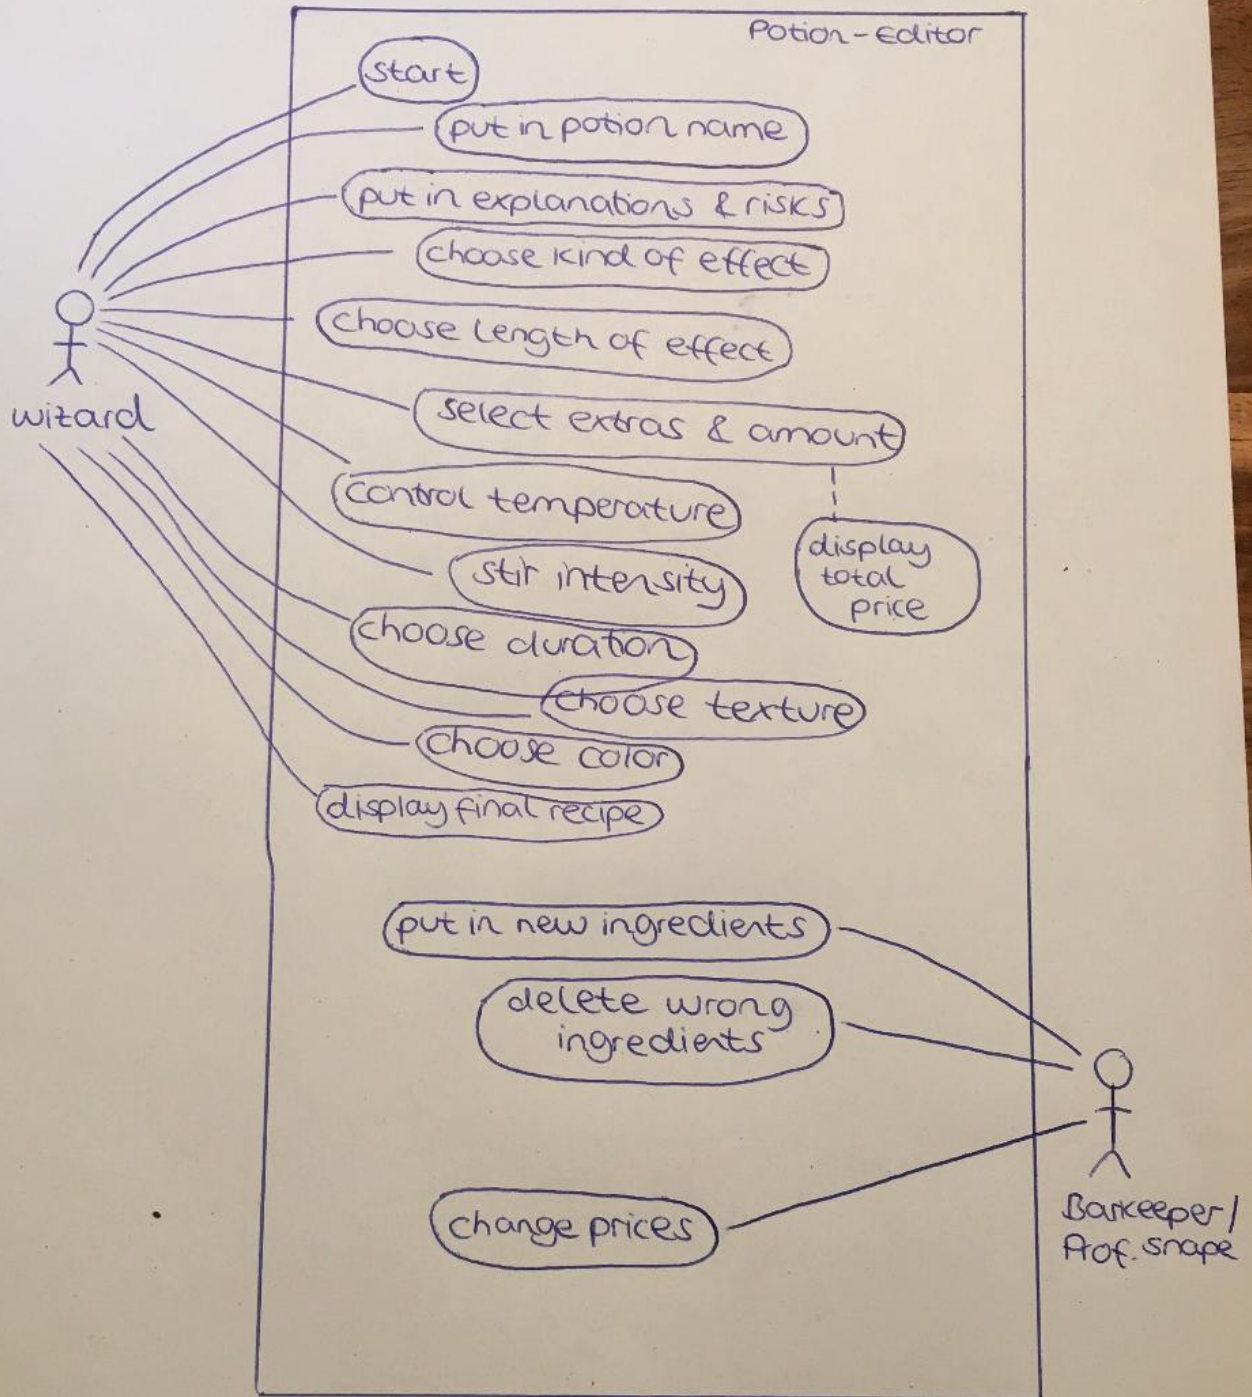 Potion-Editor
start
put in potion name
put in explanations & risks
choose kind of effect
choose length of effect
wizard
select extras & amount
control temperature
display
total
price
stir intensity
choose duration
choose texture
choose color
display final recipe
put in new ingredients
delete wrong
ingredients
change prices
Barkeeper/
Prof. Snape